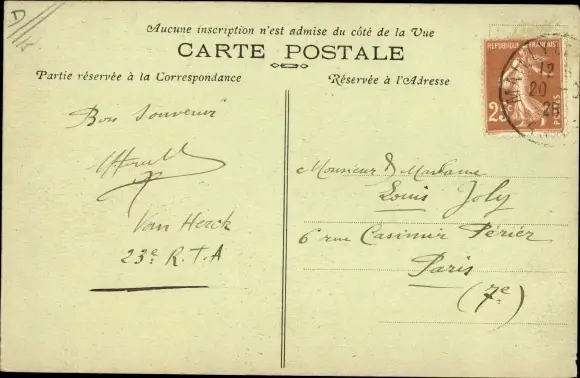 D
15
Aucune inscription n'est admise du côté de la Vue
CARTE POSTALE
Partie réservée à la Correspondance
Réservée à l'Adresse
REPUBLIQUE FRANÇAISE
25c
POSTES
12
20
Bon Souvenir
Van Herck
23e R.T.A
Monsieur & Madame
Louis Joly
6 rue Casimir Périer
Paris
(7e)